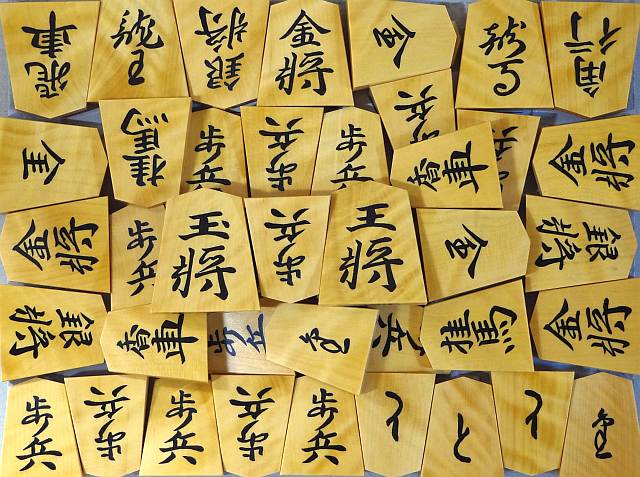 飛車
龍王
銀将
金将
全
龍馬
角行
全
桂馬
歩兵
歩兵
歩兵
歩兵
香車
歩
金将
金将
歩兵
玉将
歩兵
王将
全
銀将
銀将
香車
歩兵
歩兵
桂馬
金将
歩兵
歩兵
歩兵
歩兵
歩兵
と
と
と